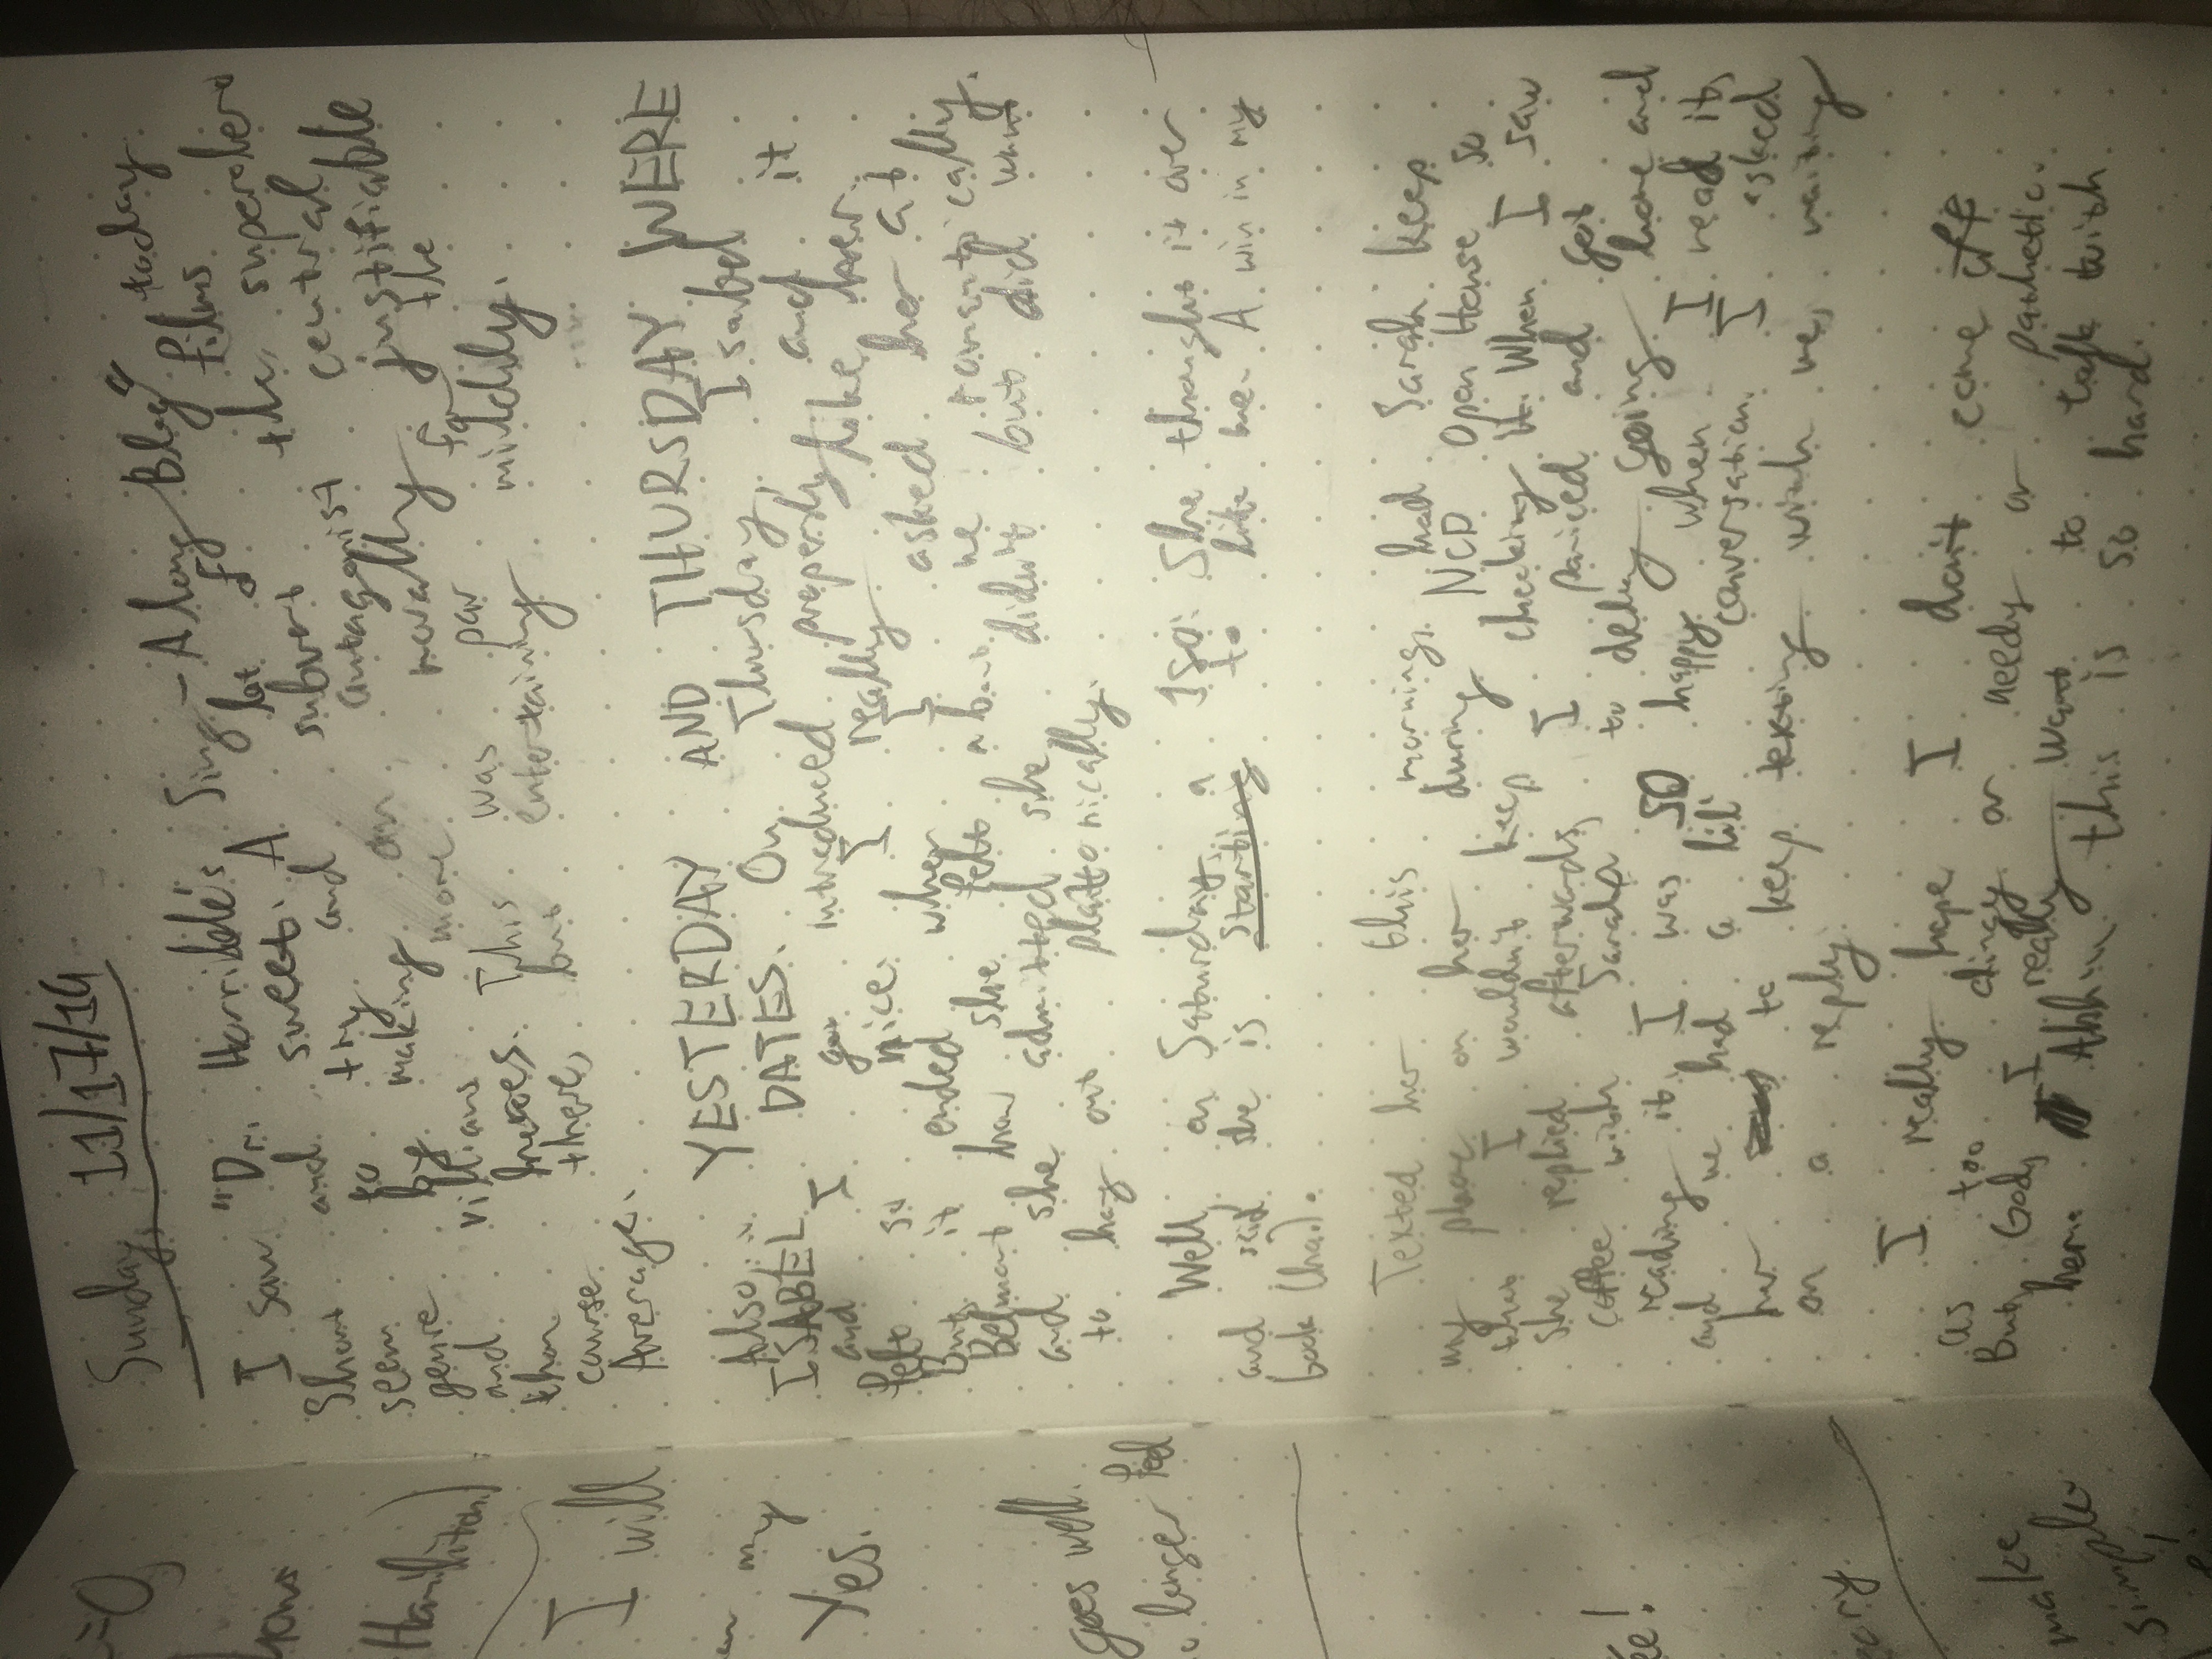 Sunday, 11/17/19
I saw "Dr. Horrible's Sing-Along Blog" today
Short and sweet. A lot of films
seem to try and subvert the superhero
genre by making an antagonist central
and villians more morally justifiable
than heroes. This was par for the
course there, but entertaining mildly.
Average.
Also, YESTERDAY AND THURSDAY WERE
ISABEL DATES. On Thursday, Isabel
and I got introduced properly and it
felt so nice. I really like her.
But it ended when I asked her at
Belmont how she felt about me romantically.
and she admitted she didn't but did want
to hang out platonically.
Well, on Saturday, a 180: She thought it over
and said she is starting to like me. A win in my
book (ha.).
Texted her this morning, had Sarah keep
my phone on her during NCD Open House so
that I wouldn't keep checking it. When I saw
she replied afterwards, I paniced and got
coffee with Sarah to delay going home and
reading it. I was SO happy when I read it,
and we had a lil' conversation. I asked
her to keep texting with me, waiting
on a reply.
I really hope I don't come off
as too clingy or needy or pathetic.
But, God, I really want to talk with
her. Ahh.. this is so hard.
=0,
Hamilton)
I will
my
Yes.
goes well.
longer feel
make
simple